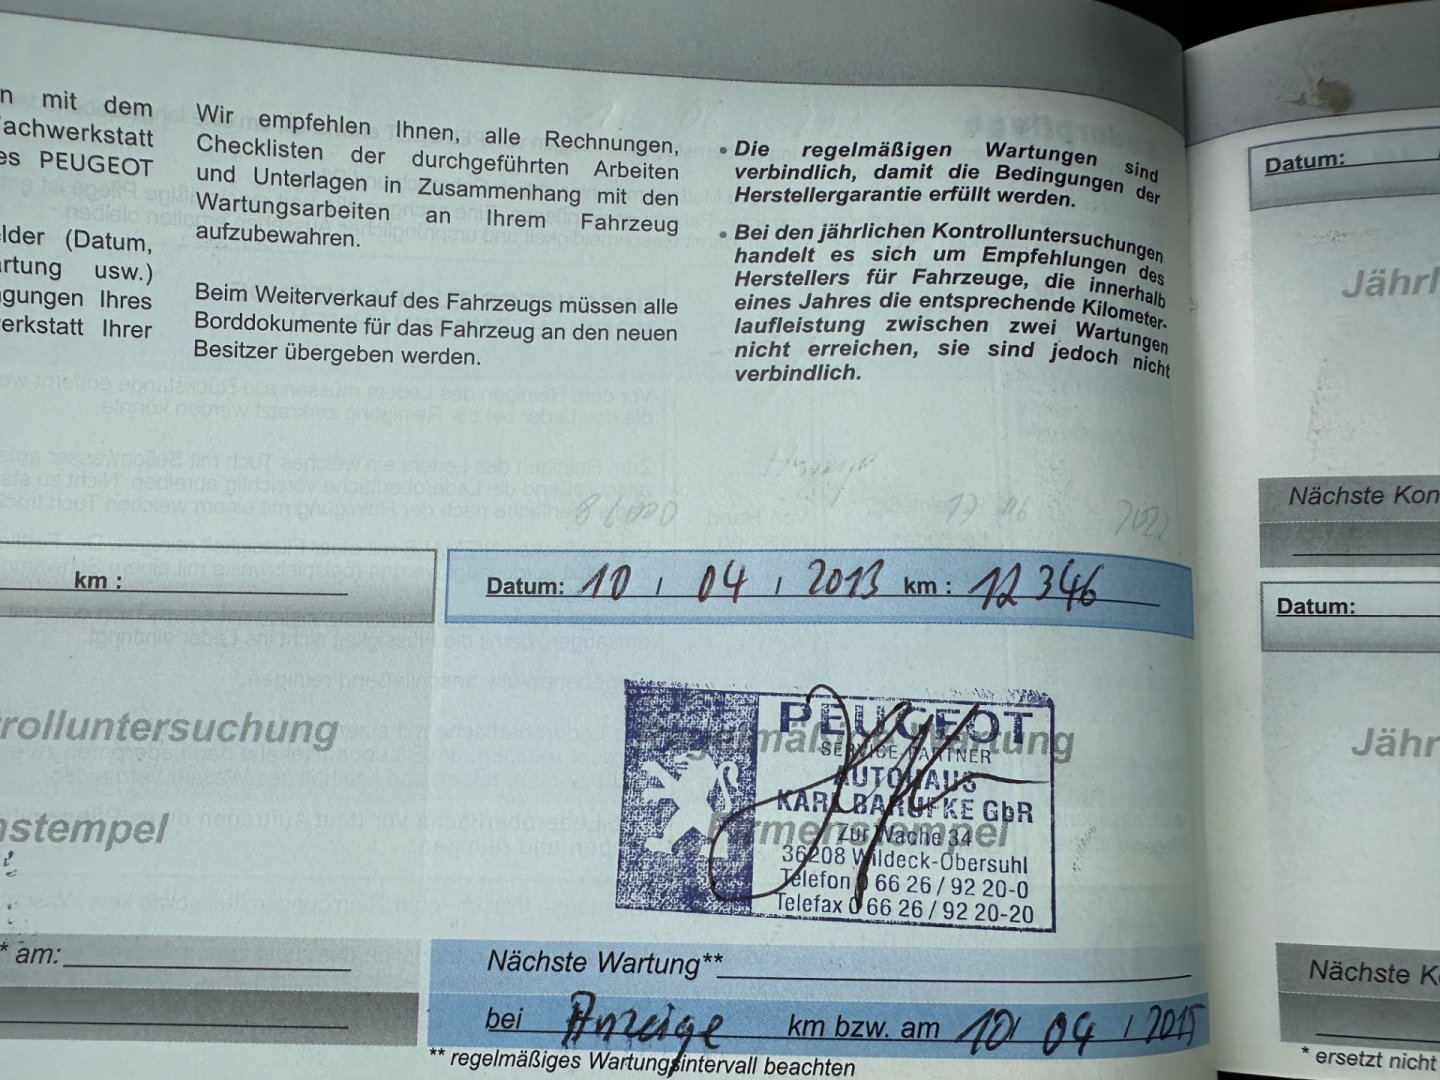 n mit dem
achwerkstatt
es PEUGEOT
lder (Datum,
rtung usw.)
gungen Ihres
erkstatt Ihrer
Wir empfehlen Ihnen, alle Rechnungen,
Checklisten der durchgeführten Arbeiten
und Unterlagen in Zusammenhang mit den
Wartungsarbeiten an Ihrem Fahrzeug
aufzubewahren.
Beim Weiterverkauf des Fahrzeugs müssen alle
Borddokumente für das Fahrzeug an den neuen
Besitzer übergeben werden.
• Die regelmäßigen Wartungen sind
verbindlich, damit die Bedingungen der
Herstellergarantie erfüllt werden.
• Bei den jährlichen Kontrolluntersuchungen
handelt es sich um Empfehlungen des
Herstellers für Fahrzeuge, die innerhalb
eines Jahres die entsprechende Kilometer-
laufleistung zwischen zwei Wartungen
nicht erreichen, sie sind jedoch nicht
verbindlich.
km :
rolluntersuchung
nstempel
* am:
Datum: 10 / 04 / 2013 km : 12 346
Regelmäßige Wartung
Firmenstempel
PEUGEOT
SERVICE PARTNER
AUTOHAUS
KARL BARUFKE GbR
Zur Wache 34
36208 Wildeck-Obersuhl
Telefon 0 66 26 / 92 20-0
Telefax 0 66 26 / 92 20-20
Nächste Wartung**
bei Anzeige km bzw. am 10 / 04 / 2015
** regelmäßiges Wartungsintervall beachten
Datum:
Jährl
Nächste Kon
Datum:
Jähr
Nächste K
* ersetzt nicht